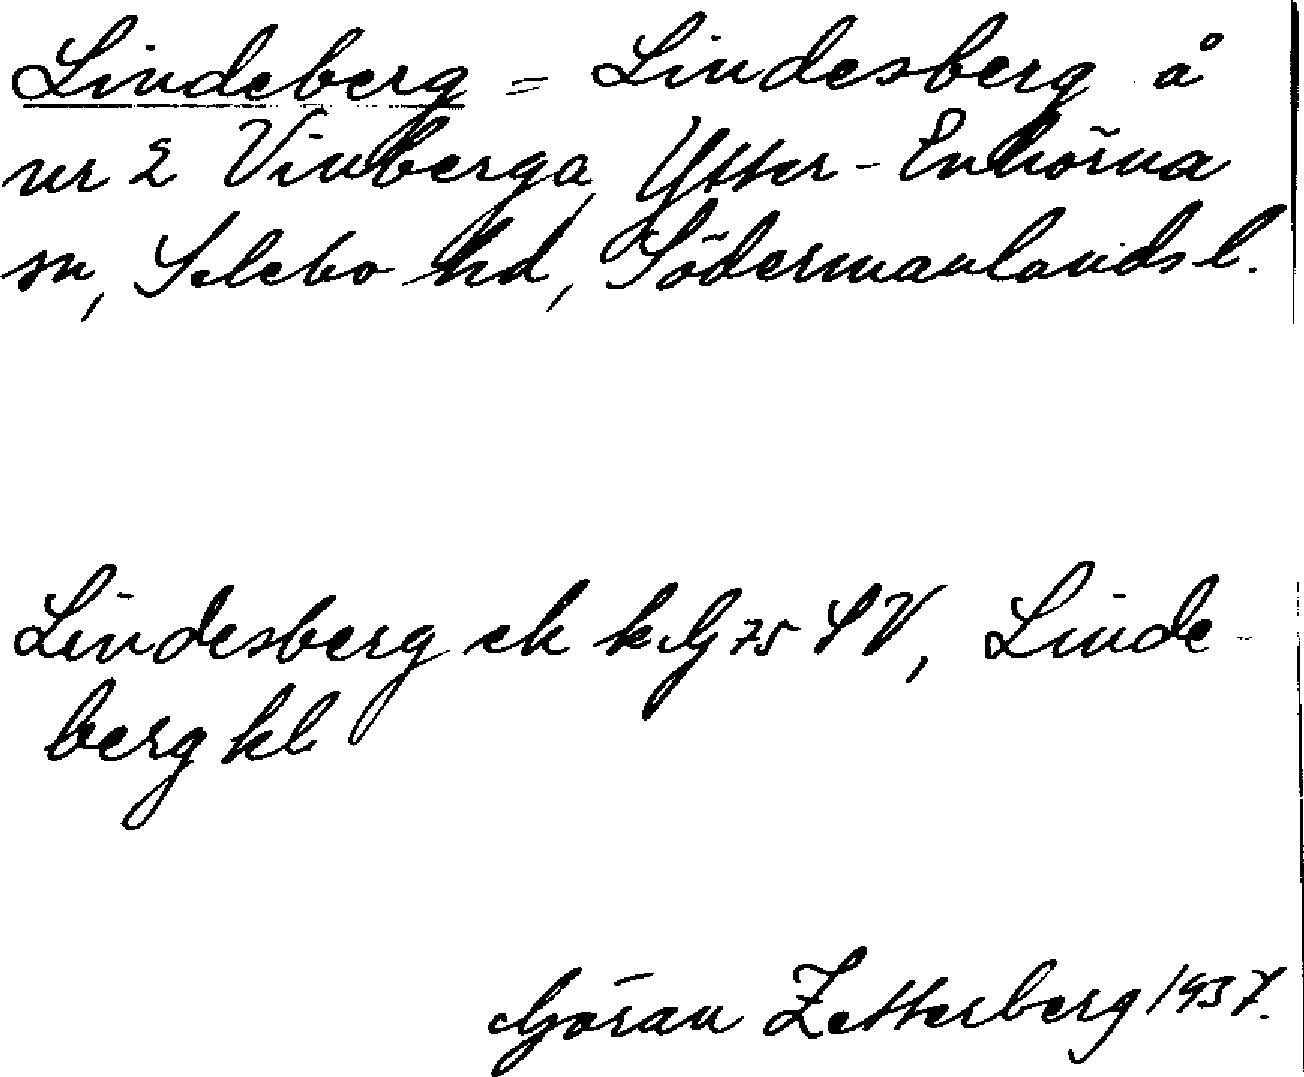 Lindeberg = Lindesberg å
nr 2 Vinberga, Ytter-Enhörna
sn, Selebo hd, Södermanlands l.
Lindesberg ek k.G 75 SV, Linde-
berg kl
Göran Zetterberg 1937.